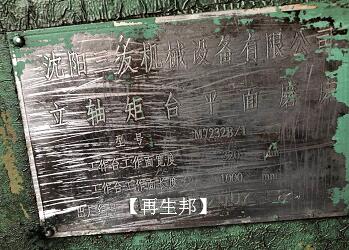 沈阳三发机械设备有限公司
立轴矩台平面磨床
型号 M7232B/1
工作台工作面宽度 320 mm
工作台工作面长度 1000 mm
【再生邦】